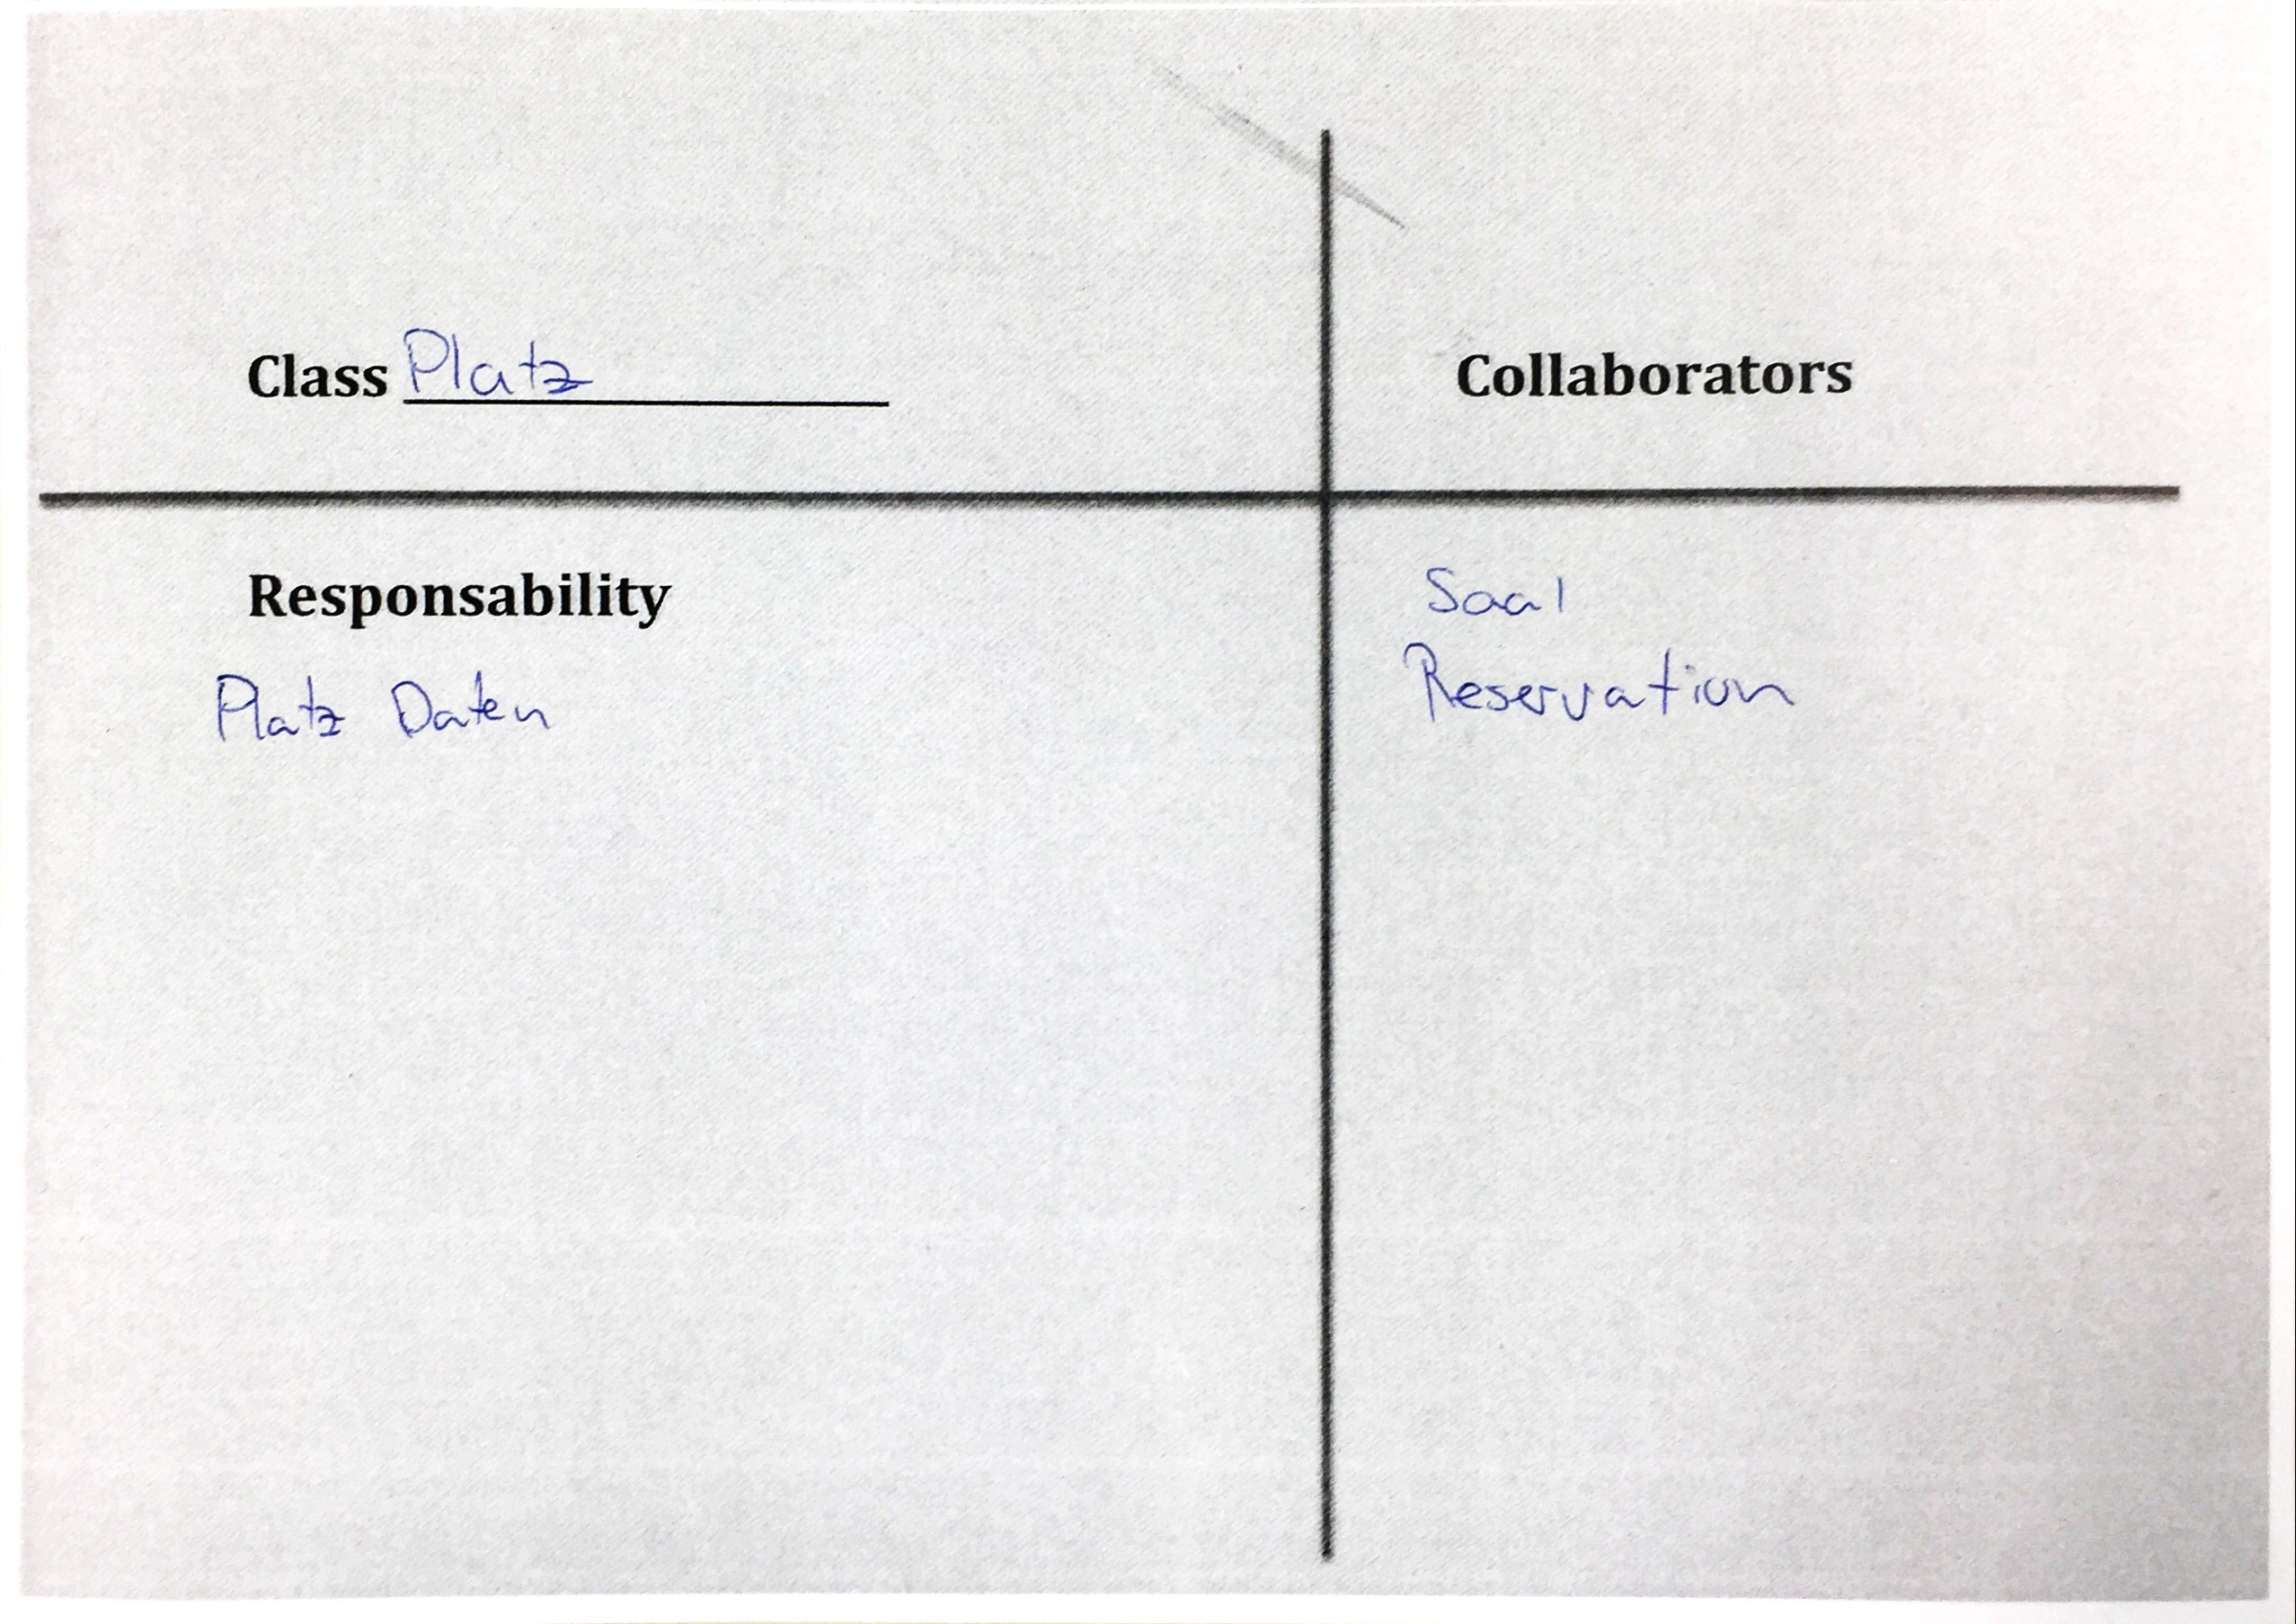 Class Platz
Collaborators
Responsability
Platz Daten
Saal
Reservation